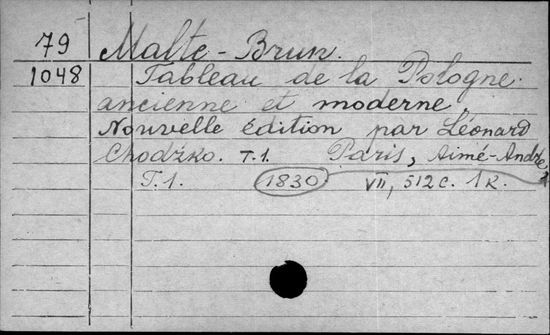 79 Malte-Brun.
1048 Tableau de la Pologne
ancienne et moderne.
Nouvelle édition par Léonard
Chodźko. T.1. Paris, Aimé-André
T.1. 1830 VII, 512 c. 1 к.